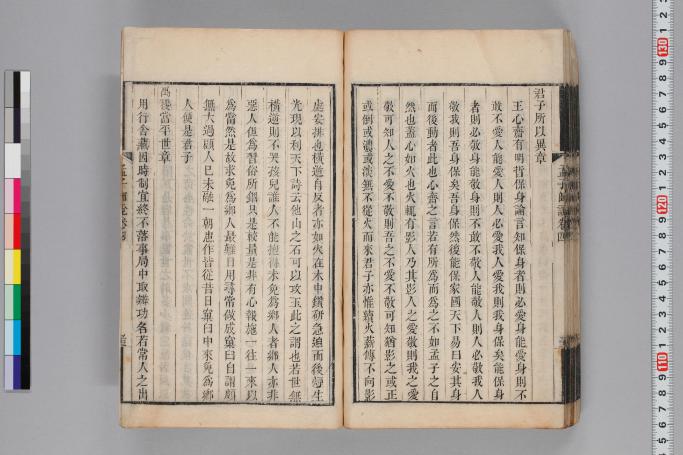 君子所以異章
王心齋有明哲保身論言知保身者則必愛身能愛身則不
敢不愛人能愛人則人必愛我人愛我則我身保矣能保身
者則必敬身能敬身則不敢不敬人能敬人則人必敬我人
敬我則吾身保矣吾身保然後能保家國天下易曰安其身
而後動者此也心齋之言若有所為而為之不如孟子之自
然也蓋心如火也火輒有影人乃其影人之愛敬則我之愛
敬可知人之不愛不敬則吾之不愛不敬可知猶影之或正
或倒或濃或淡無不從火而來君子亦惟續火薪傳不向影
處安排也橫逆自反者亦如火在木中鑽研急廹而後學生
光現以利天下詩云他山之石可以攻玉此之謂也若世無
橫逆則不哭孩兒誰人不能抱得未免為鄉人者鄉人亦非
惡人但為習俗所錮只是較量是非有心報施一往一來以
為當然是故求免為鄉人最難日用尋常做成窠臼自謂頗
無大過顧人已未融一朝患作皆從昔日窠臼中來免為鄉
人便是君子
禹稷當平世章
用行舍藏因時制宜終不落事局中取辦功名若常人之出
孟子師說卷四